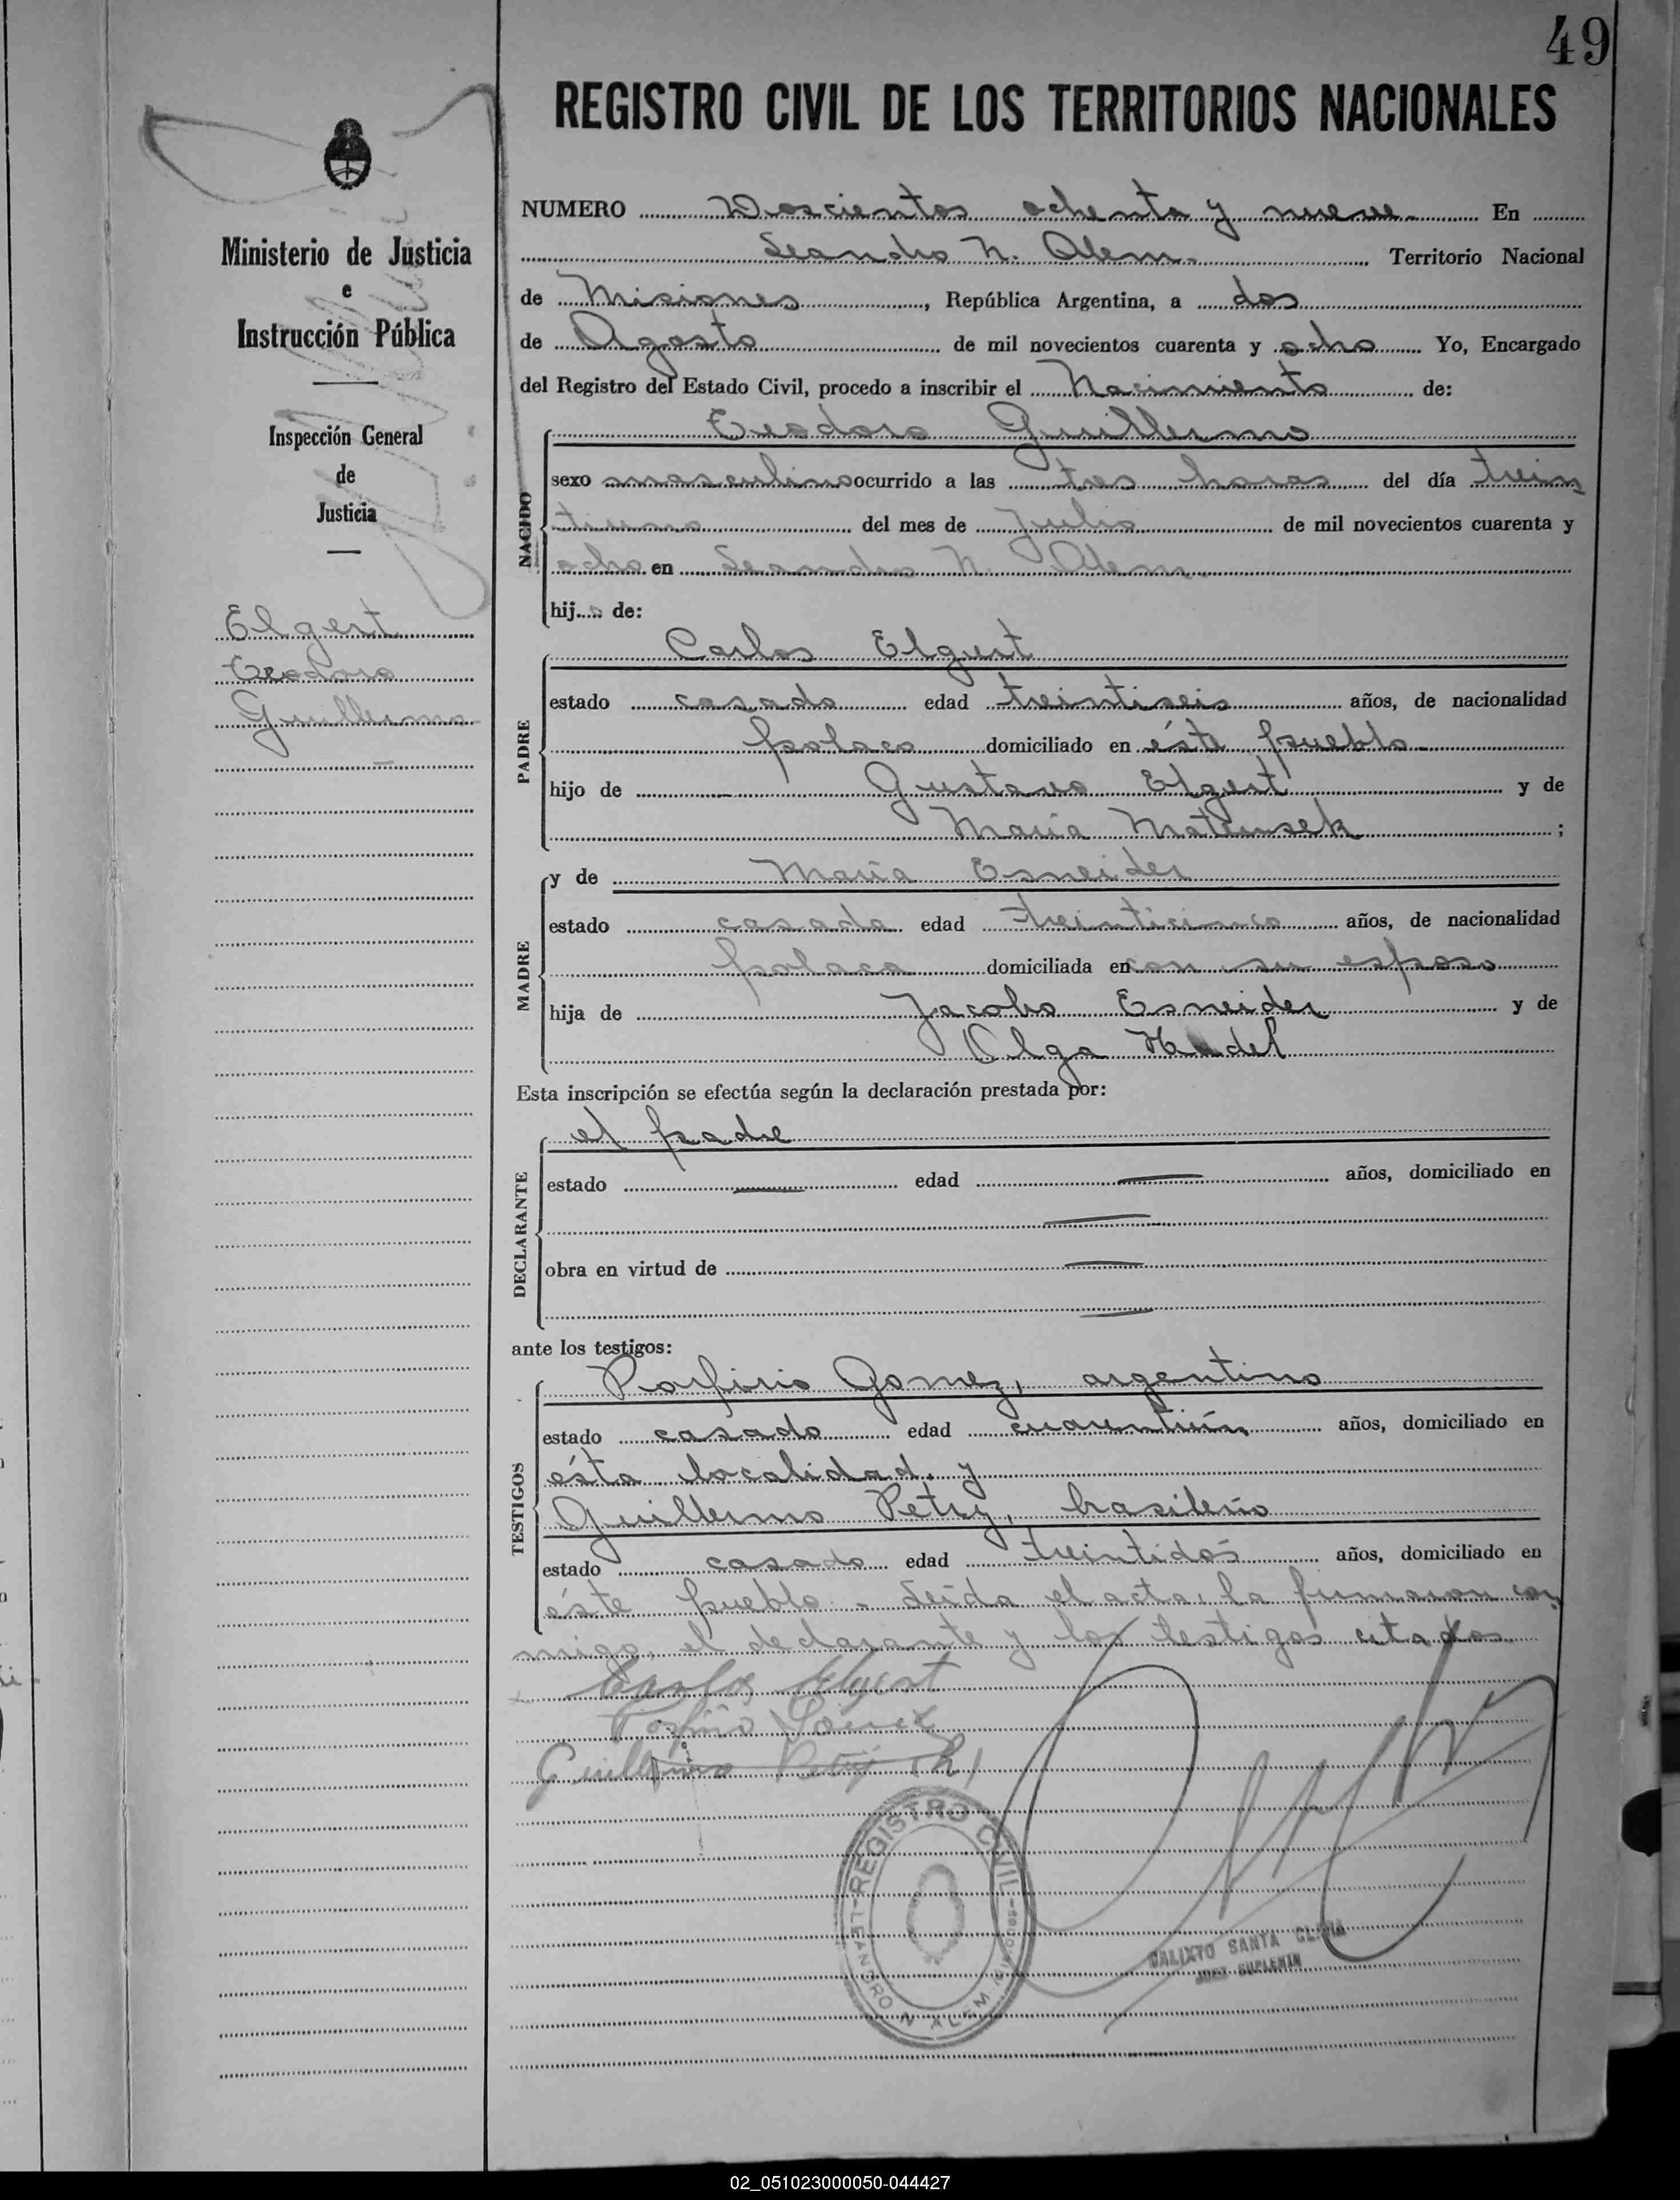 49
REGISTRO CIVIL DE LOS TERRITORIOS NACIONALES
Ministerio de Justicia
e
Instrucción Pública
Inspección General
de
Justicia
Elgert
Teodoro
Guillermo
NUMERO Doscientos ochenta y nueve En
Leandro N. Alem. Territorio Nacional
de Misiones, República Argentina, a dos
de Agosto de mil novecientos cuarenta y ocho Yo, Encargado
del Registro del Estado Civil, procedo a inscribir el Nacimiento de:
NACIDO
Teodoro Guillermo
sexo masculino ocurrido a las tres horas del día trein
tiuno del mes de Julio de mil novecientos cuarenta y
ocho en Leandro N. Alem.
hijo de:
PADRE
Carlos Elgert
estado casado edad treintiseis años, de nacionalidad
polaco domiciliado en éste pueblo
hijo de Gustavo Elgert y de
María Mateusek ;
MADRE
y de María Esneider
estado casada edad treinticinco años, de nacionalidad
polaca domiciliada en con su esposo
hija de Jacobo Esneider y de
Olga
Esta inscripción se efectúa según la declaración prestada por:
DECLARANTE
el padre
estado — edad — años, domiciliado en
—
obra en virtud de —
—
ante los testigos:
TESTIGOS
Porfirio Gomez, argentino
estado casado edad cuarentiún años, domiciliado en
ésta localidad. y
Guillermo Petry, brasileño
estado casado edad treintidos años, domiciliado en
éste pueblo. Leída el acta, la firmaron con
migo, el declarante y los testigos citados.
Carlos Elgert
Porfirio Gomez
Guillermo Petry (h)
REGISTRO CIVIL
LEANDRO N. ALEM
CALIXTO SANTA CLARA
JUEZ SUPLENTE
02_051023000050-044427